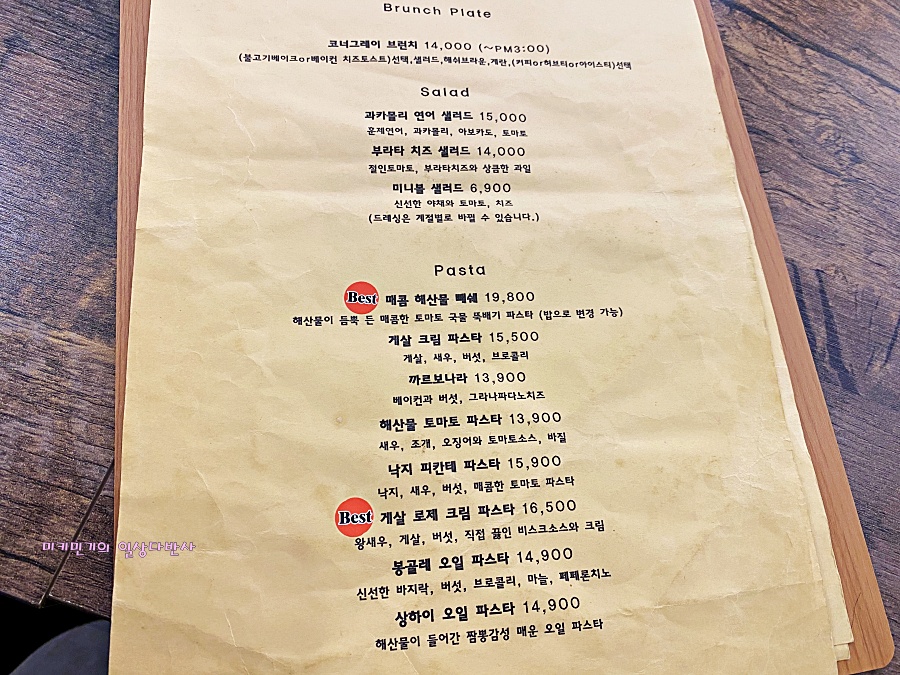 Brunch Plate
코너그레이 브런치 14,000 (~PM3:00)
(불고기베이크or베이컨 치즈토스트)선택,샐러드,해쉬브라운,계란,(커피or허브티or아이스티)선택
Salad
과카몰리 연어 샐러드 15,000
훈제연어, 과카몰리, 아보카도, 토마토
부라타 치즈 샐러드 14,000
절인토마토, 부라타치즈와 상큼한 과일
미니볼 샐러드 6,900
신선한 야채와 토마토, 치즈
(드레싱은 계절별로 바뀔 수 있습니다.)
Pasta
Best 매콤 해산물 빼쉐 19,800
해산물이 듬뿍 든 매콤한 토마토 국물 뚝배기 파스타 (밥으로 변경 가능)
게살 크림 파스타 15,500
게살, 새우, 버섯, 브로콜리
까르보나라 13,900
베이컨과 버섯, 그라나파다노치즈
해산물 토마토 파스타 13,900
새우, 조개, 오징어와 토마토소스, 바질
낙지 피칸테 파스타 15,900
낙지, 새우, 버섯, 매콤한 토마토 파스타
Best 게살 로제 크림 파스타 16,500
왕새우, 게살, 버섯, 직접 끓인 비스크소스와 크림
봉골레 오일 파스타 14,900
신선한 바지락, 버섯, 브로콜리, 마늘, 페페론치노
상하이 오일 파스타 14,900
해산물이 들어간 짬뽕감성 매운 오일 파스타
미키민기의 일상다반사